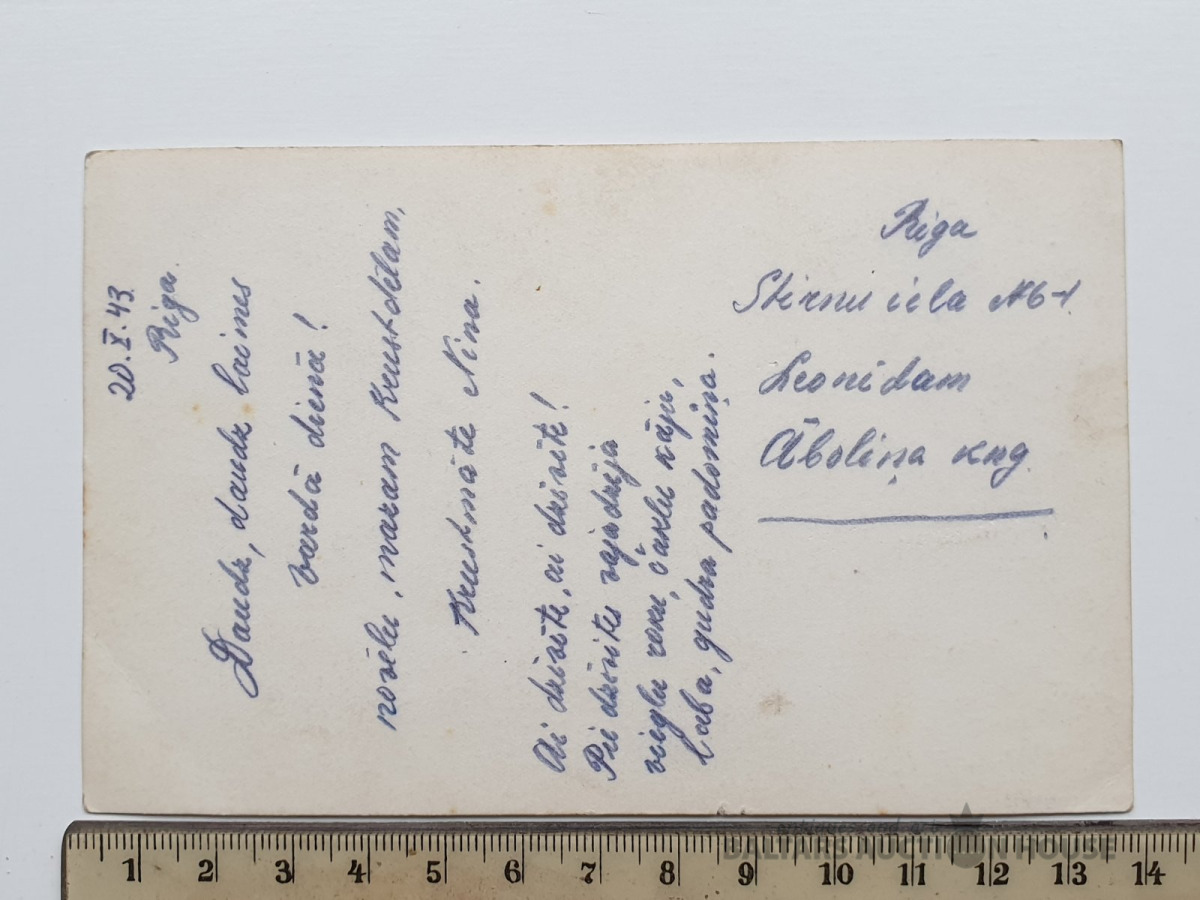 20.X.43.
Rīga.
Daudz, daudz laimes
vārdā dienā!
novēlu, mazam Krustdēlam,
Krustmāte Nina.
Ai dzīvīte, ai dzīvīte!
Pie dzīvītes vajadzēja
viegla roku, čaklu kāju,
laba, gudra padomiņa.
Rīga
Stirnu iela №6-1
Leonidam
Āboliņa kng
1 2 3 4 5 6 7 8 9 10 11 12 13 14
BALTARS AUCTION HOUSE